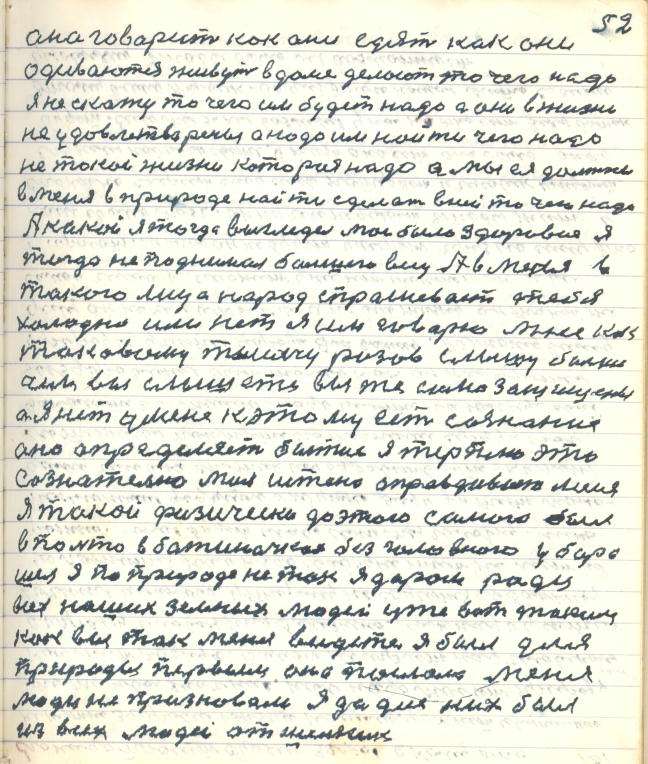 52
она говарит как они едят как они
одиваются живут в доме делают то чего надо
я не скажу то чего им будет надо а они в жизни
не удовлетварены а надо им найти чего надо
не такой жизни которая надо а мы ея должны
в меня в природе найти сделат в ней то чего надо
А какой я тогда выгледел мое было здоровие я
тогда не поднимал балшего весу 17 в меня в
такого лица народ спрашевает тебя
холодно или нет я им говарю мне как
таковому тысячу разов
чем вы слышете вы же
а я нет у мене к этому ест сознание
ано определяет бытие я терплю это
сознателно моя истено оправдивает меня
я такой физически до этого самого был
в палто в батиначках без головного убора
шел я по природе не так я даром ради
вех нашых земных людей уже вот таким
как вы так меня видете я был для
природы первым она меня
люди не признавали я да для них был
из всех людей отшелник